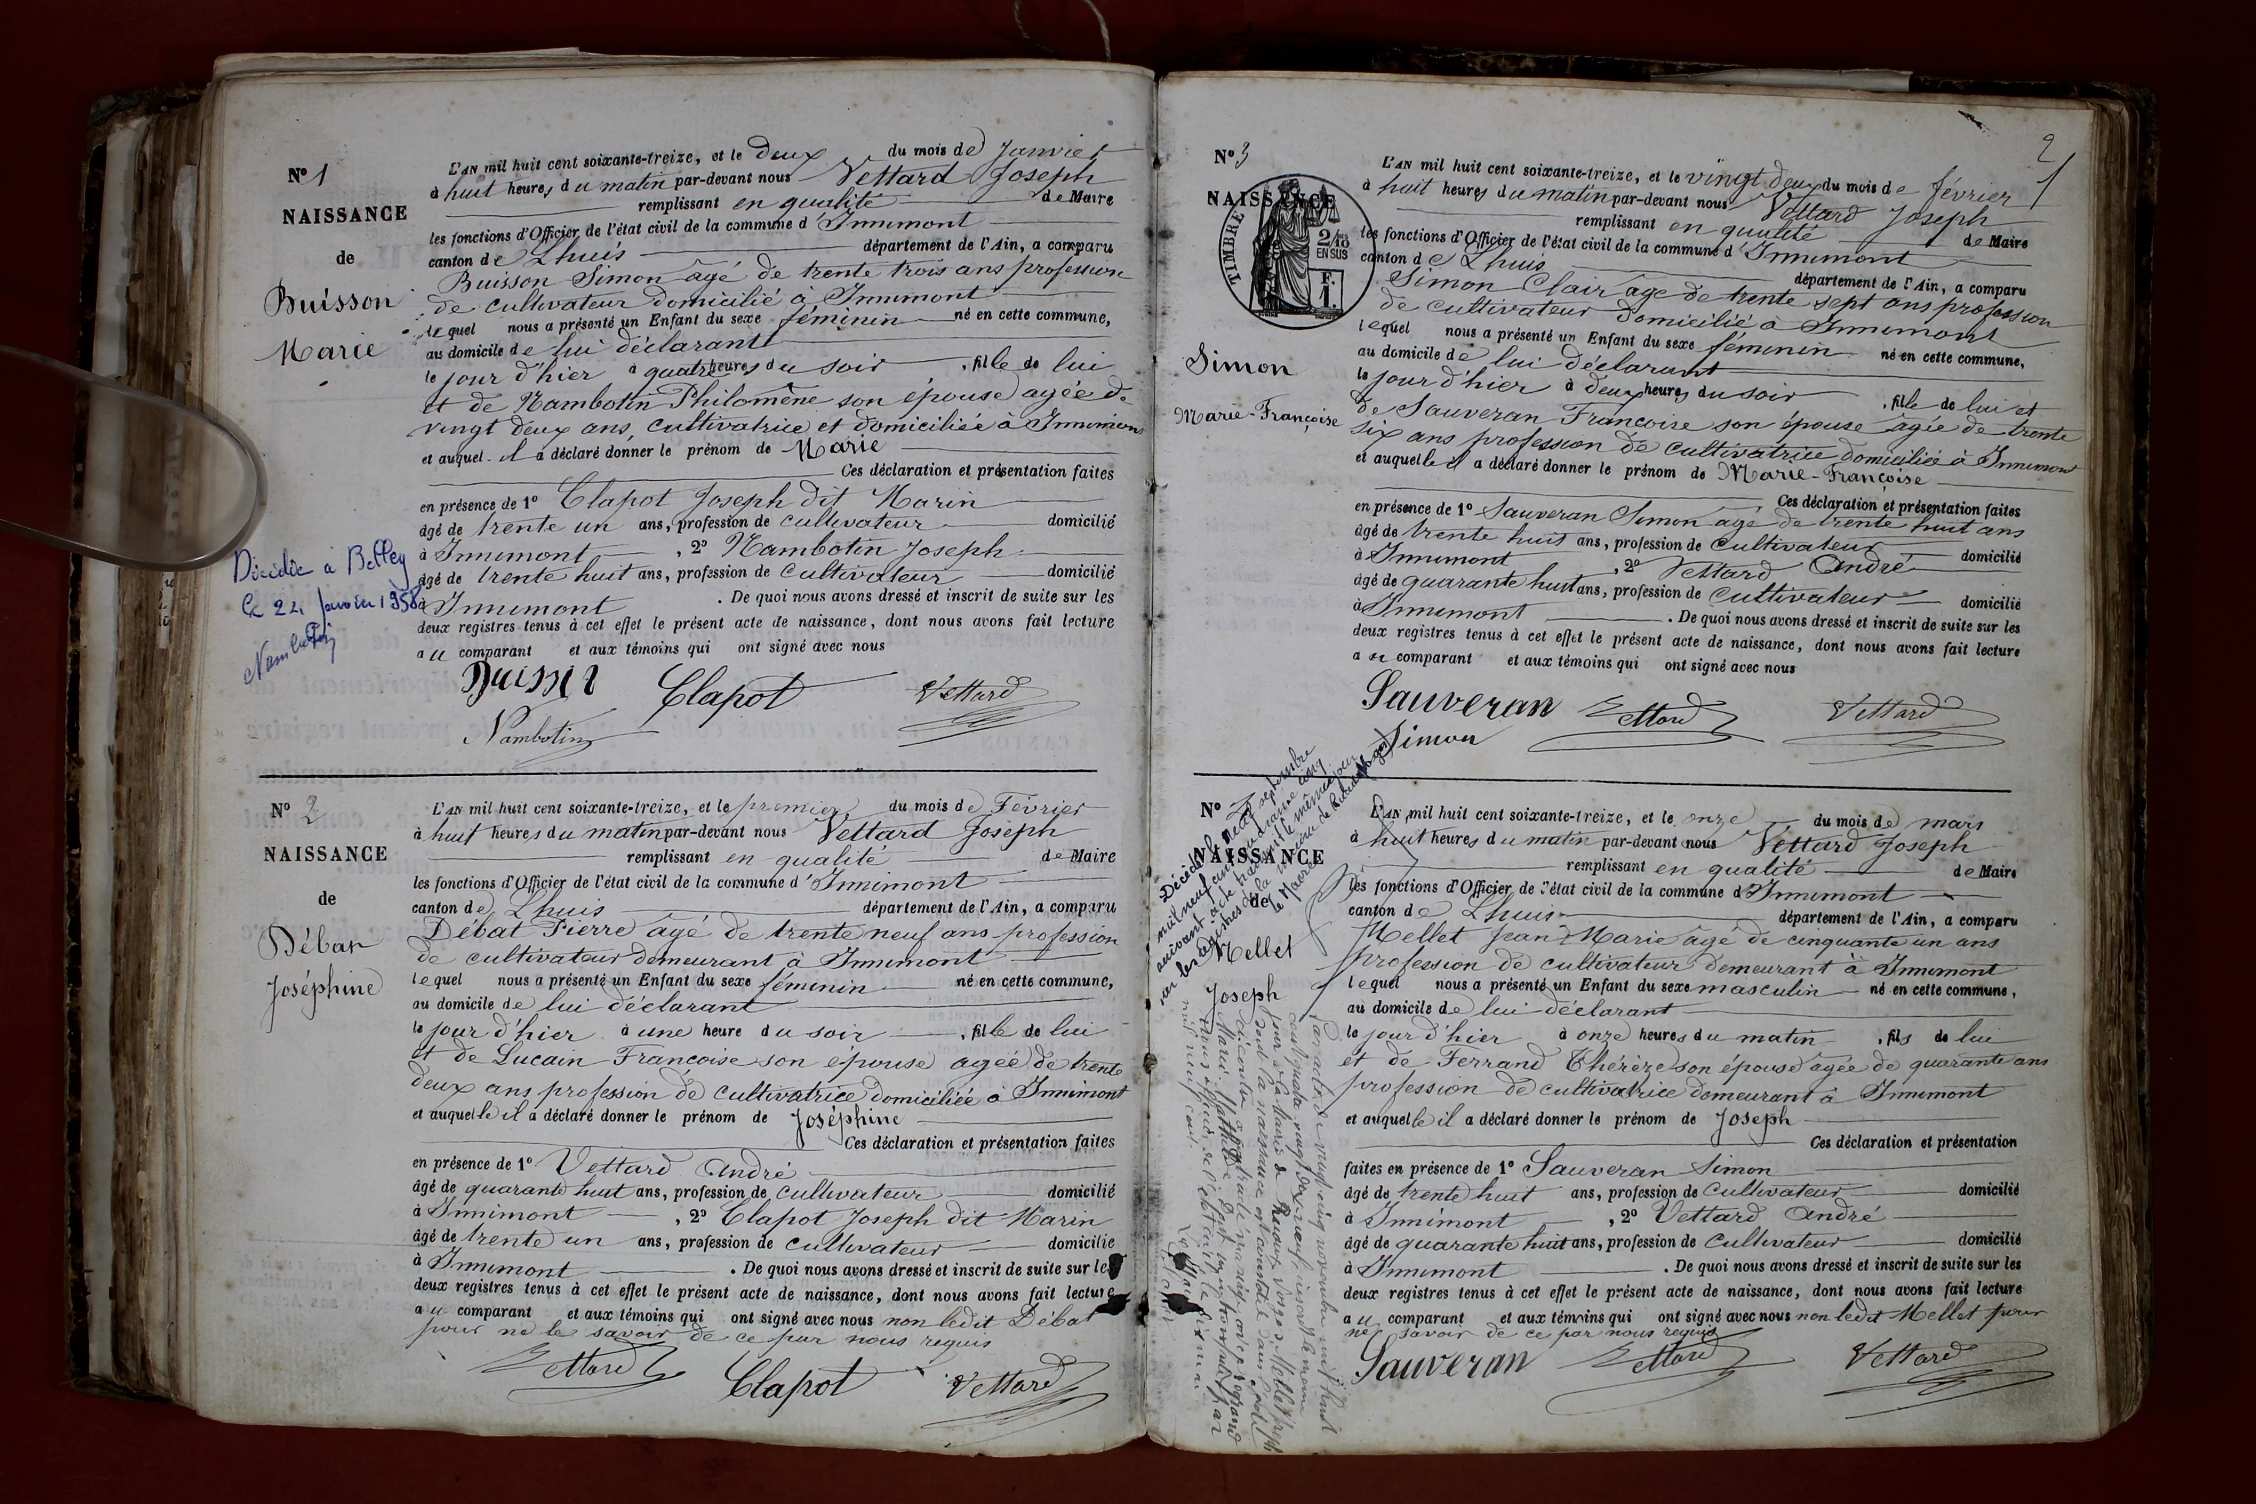 N° 1
NAISSANCE
de
Buisson
Marie
L'AN mil huit cent soixante-treize, et le deux du mois de Janvier
à huit heures du matin par-devant nous Vettard Joseph
remplissant en qualité de Maire
les fonctions d'Officier de l'état civil de la commune d'Innimont
canton de Lhuis département de l'Ain, a comparu
Buisson Simon âgé de trente trois ans profession
de cultivateur domicilié à Innimont
lequel nous a présenté un Enfant du sexe féminin né en cette commune,
au domicile de lui déclarant
le jour d'hier à quatre heures du soir, fille de lui
et de Nambotin Philomène son épouse agée de
vingt deux ans, cultivatrice et domiciliée à Innimont
et auquel il a déclaré donner le prénom de Marie
Ces déclaration et présentation faites
en présence de 1° Clapot Joseph dit Marin
âgé de trente un ans, profession de cultivateur domicilié
à Innimont, 2° Nambotin Joseph
âgé de trente huit ans, profession de cultivateur domicilié
à Innimont. De quoi nous avons dressé et inscrit de suite sur les
deux registres tenus à cet effet le présent acte de naissance, dont nous avons fait lecture
au comparant et aux témoins qui ont signé avec nous
Buisson Clapot Vettard
Nambotin
Décédée à Belley
le 24 janvier 1958
N° 2
NAISSANCE
de
Débat
Joséphine
L'AN mil huit cent soixante-treize, et le premier du mois de Février
à huit heures du matin par-devant nous Vettard Joseph
remplissant en qualité de Maire
les fonctions d'Officier de l'état civil de la commune d'Innimont
canton de Lhuis département de l'Ain, a comparu
Débat Pierre âgé de trente neuf ans profession
de cultivateur demeurant à Innimont
lequel nous a présenté un Enfant du sexe féminin né en cette commune,
au domicile de lui déclarant
le jour d'hier à une heure du soir, fille de lui
et de Lucain Françoise son épouse agée de trente
deux ans profession de cultivatrice domiciliée à Innimont
et auquelle il a déclaré donner le prénom de Joséphine
Ces déclaration et présentation faites
en présence de 1° Vettard André
âgé de quarante huit ans, profession de cultivateur domicilié
à Innimont, 2° Clapot Joseph dit Marin
âgé de trente un ans, profession de cultivateur domicilié
à Innimont. De quoi nous avons dressé et inscrit de suite sur les
deux registres tenus à cet effet le présent acte de naissance, dont nous avons fait lecture
au comparant et aux témoins qui ont signé avec nous non ledit Débat
pour ne le savoir de ce par nous requis
Vettard Clapot Vettard
2
N° 3
NAISSANCE
TIMBRE
2/10
EN SUS
F.
1.
Simon
Marie-Françoise
L'AN mil huit cent soixante-treize, et le vingt deux du mois de février
à huit heures du matin par-devant nous Vettard Joseph
remplissant en qualité de Maire
les fonctions d'Officier de l'état civil de la commune d'Innimont
canton de Lhuis département de l'Ain, a comparu
Simon Clair âgé de trente sept ans profession
de cultivateur domicilié à Innimont
lequel nous a présenté un Enfant du sexe féminin né en cette commune,
au domicile de lui déclarant
le jour d'hier à deux heures du soir, fille de lui et
de Sauveran Françoise son épouse âgée de trente
six ans profession de cultivatrice domiciliée à Innimont
et auquelle il a déclaré donner le prénom de Marie-Françoise
Ces déclaration et présentation faites
en présence de 1° Sauveran Simon âgé de trente huit ans
âgé de trente huit ans, profession de cultivateur domicilié
à Innimont, 2° Vettard André
âgé de quarante huit ans, profession de cultivateur domicilié
à Innimont. De quoi nous avons dressé et inscrit de suite sur les
deux registres tenus à cet effet le présent acte de naissance, dont nous avons fait lecture
au comparant et aux témoins qui ont signé avec nous
Sauveran Vettard Vettard
Simon
N° 4
NAISSANCE
de
Mellet
Joseph
L'AN mil huit cent soixante-treize, et le onze du mois de mars
à huit heures du matin par-devant nous Vettard Joseph
remplissant en qualité de Maire
les fonctions d'Officier de l'état civil de la commune d'Innimont
canton de Lhuis département de l'Ain, a comparu
Mellet Jean Marie âgé de cinquante un ans
profession de cultivateur demeurant à Innimont
lequel nous a présenté un Enfant du sexe masculin né en cette commune,
au domicile de lui déclarant
le jour d'hier à onze heures du matin, fils de lui
et de Ferrand Thérèze son épouse âgée de quarante ans
profession de cultivatrice demeurant à Innimont
et auquelle il a déclaré donner le prénom de Joseph
Ces déclaration et présentation
faites en présence de 1° Sauveran Simon
âgé de trente huit ans, profession de cultivateur domicilié
à Innimont, 2° Vettard André
âgé de quarante huit ans, profession de cultivateur domicilié
à Innimont. De quoi nous avons dressé et inscrit de suite sur les
deux registres tenus à cet effet le présent acte de naissance, dont nous avons fait lecture
au comparant et aux témoins qui ont signé avec nous non ledit Mellet pour
ne savoir de ce par nous requis
Sauveran Vettard Vettard
Décédé le neuf septembre
mil neuf cent quarante cinq
suivant acte transcrit le même jour
sur les registres de la commune de
le Maire
Par acte du vingt cinq novembre mil huit
cent quatre vingt dix neuf, inscrit